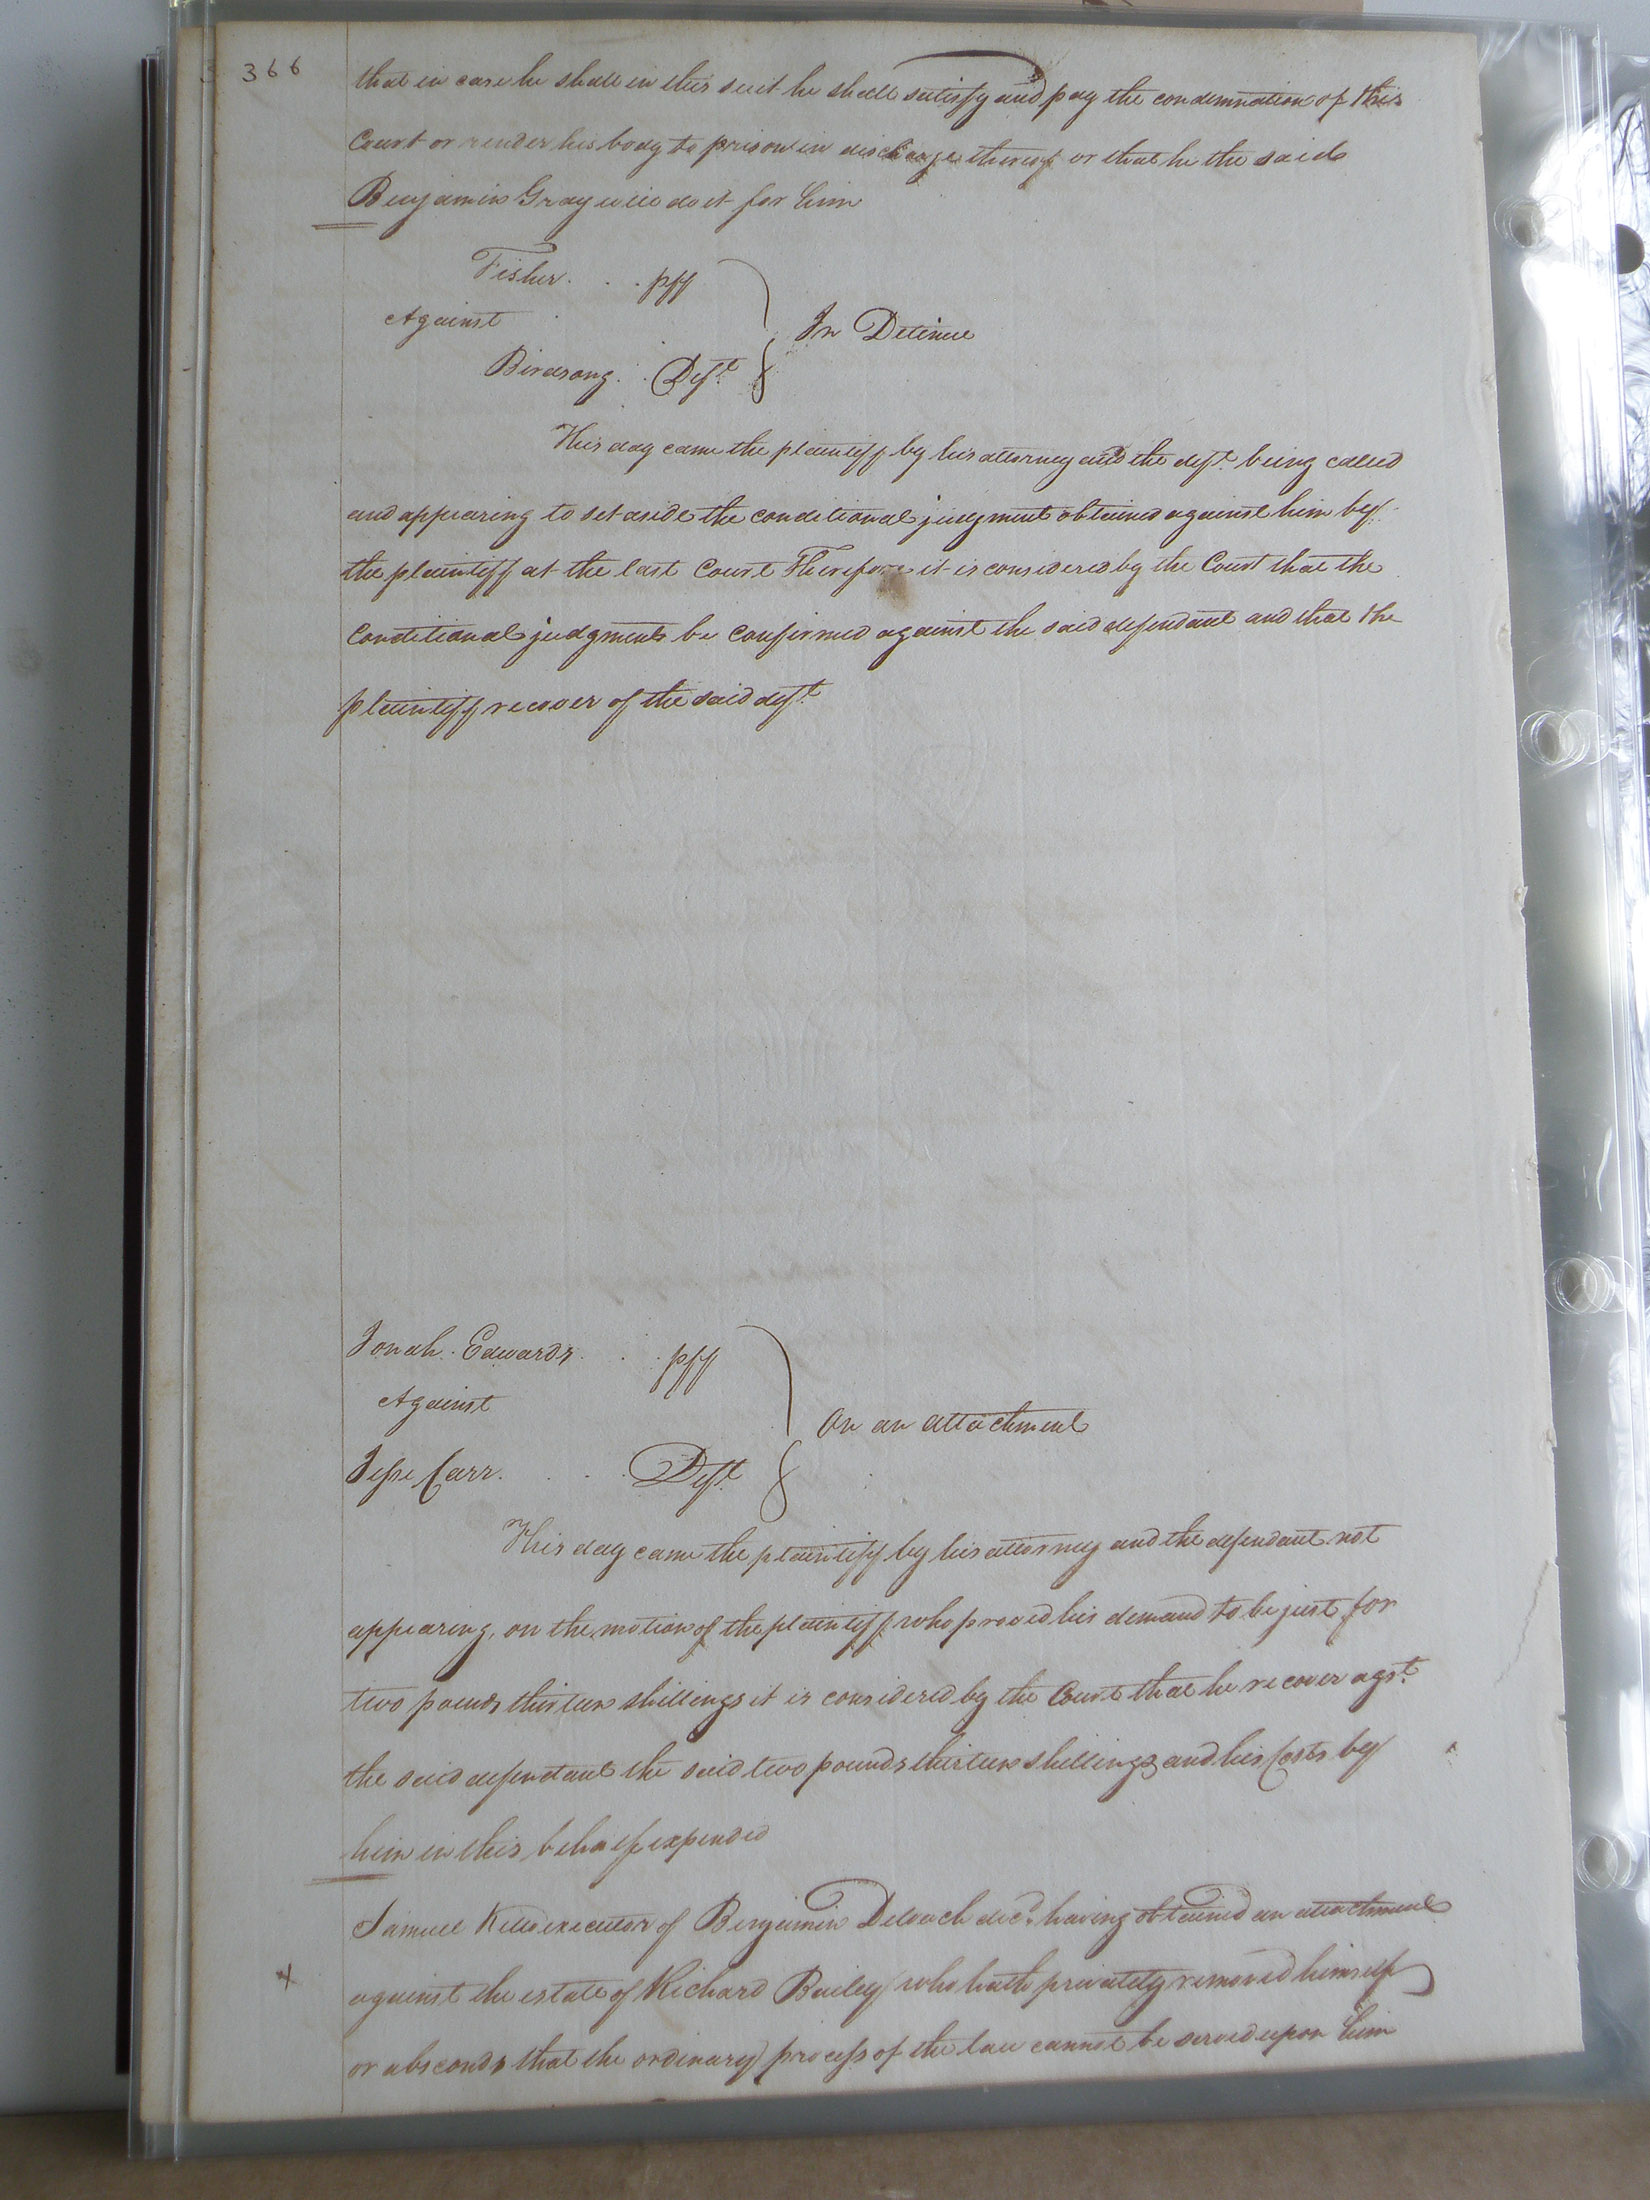 366
that in case he shall in this suit he shall satisfy and pay the condemnation of this
Court or render his body to prison in discharge thereof or that he the said
Benjamin Gray will do it for him
Fisher . . . plff
Against
Birdsong . . Deft
In Detinue
This day came the plaintiff by his attorney and the deft being called
and appearing to set aside the conditional judgment obtained against him by
the plaintiff at the last Court Therefore it is considered by the Court that the
Conditional judgment be confirmed against the said defendant and that the
plaintiff recover of the said deft
Jonah Edwards . . . plff
Against
Jesse Carr . . . Deft
On an attachment
This day came the plaintiff by his attorney and the defendant not
appearing, on the motion of the plaintiff who proved his demand to be just for
two pounds thirteen shillings it is considered by the Court that he recover agst
the said defendant the said two pounds thirteen shillings and his Costs by
him in this behalf expended
Samuel Kello executor of Benjamin Deloach decd having obtained an attachment
x against the estate of Richard Bailey who hath privately removed himself
or absconds that the ordinary process of the law cannot be served upon him